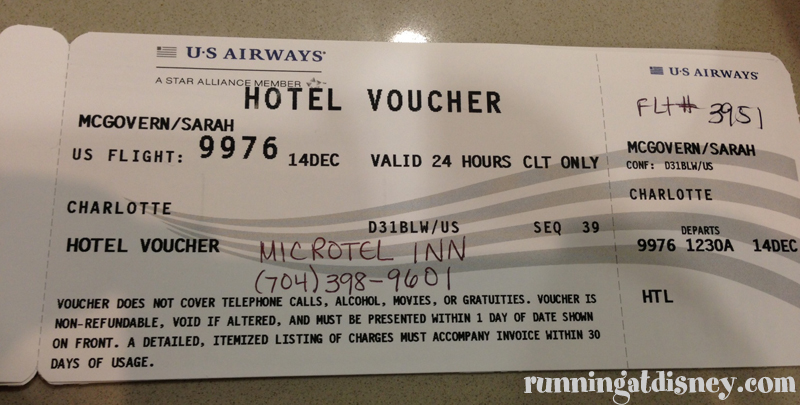 U·S AIRWAYS
A STAR ALLIANCE MEMBER
HOTEL VOUCHER
MCGOVERN/SARAH
US FLIGHT: 9976 14DEC VALID 24 HOURS CLT ONLY
CHARLOTTE
D31BLW/US SEQ 39
HOTEL VOUCHER MICROTEL INN
(704)398-9601
VOUCHER DOES NOT COVER TELEPHONE CALLS, ALCOHOL, MOVIES, OR GRATUITIES. VOUCHER IS
NON-REFUNDABLE, VOID IF ALTERED, AND MUST BE PRESENTED WITHIN 1 DAY OF DATE SHOWN
ON FRONT. A DETAILED, ITEMIZED LISTING OF CHARGES MUST ACCOMPANY INVOICE WITHIN 30
DAYS OF USAGE.
U·S AIRWAYS
FLt# 3951
MCGOVERN/SARAH
CONF: D31BLW/US
CHARLOTTE
DEPARTS
9976 1230A 14DEC
HTL
runningatdisney.com